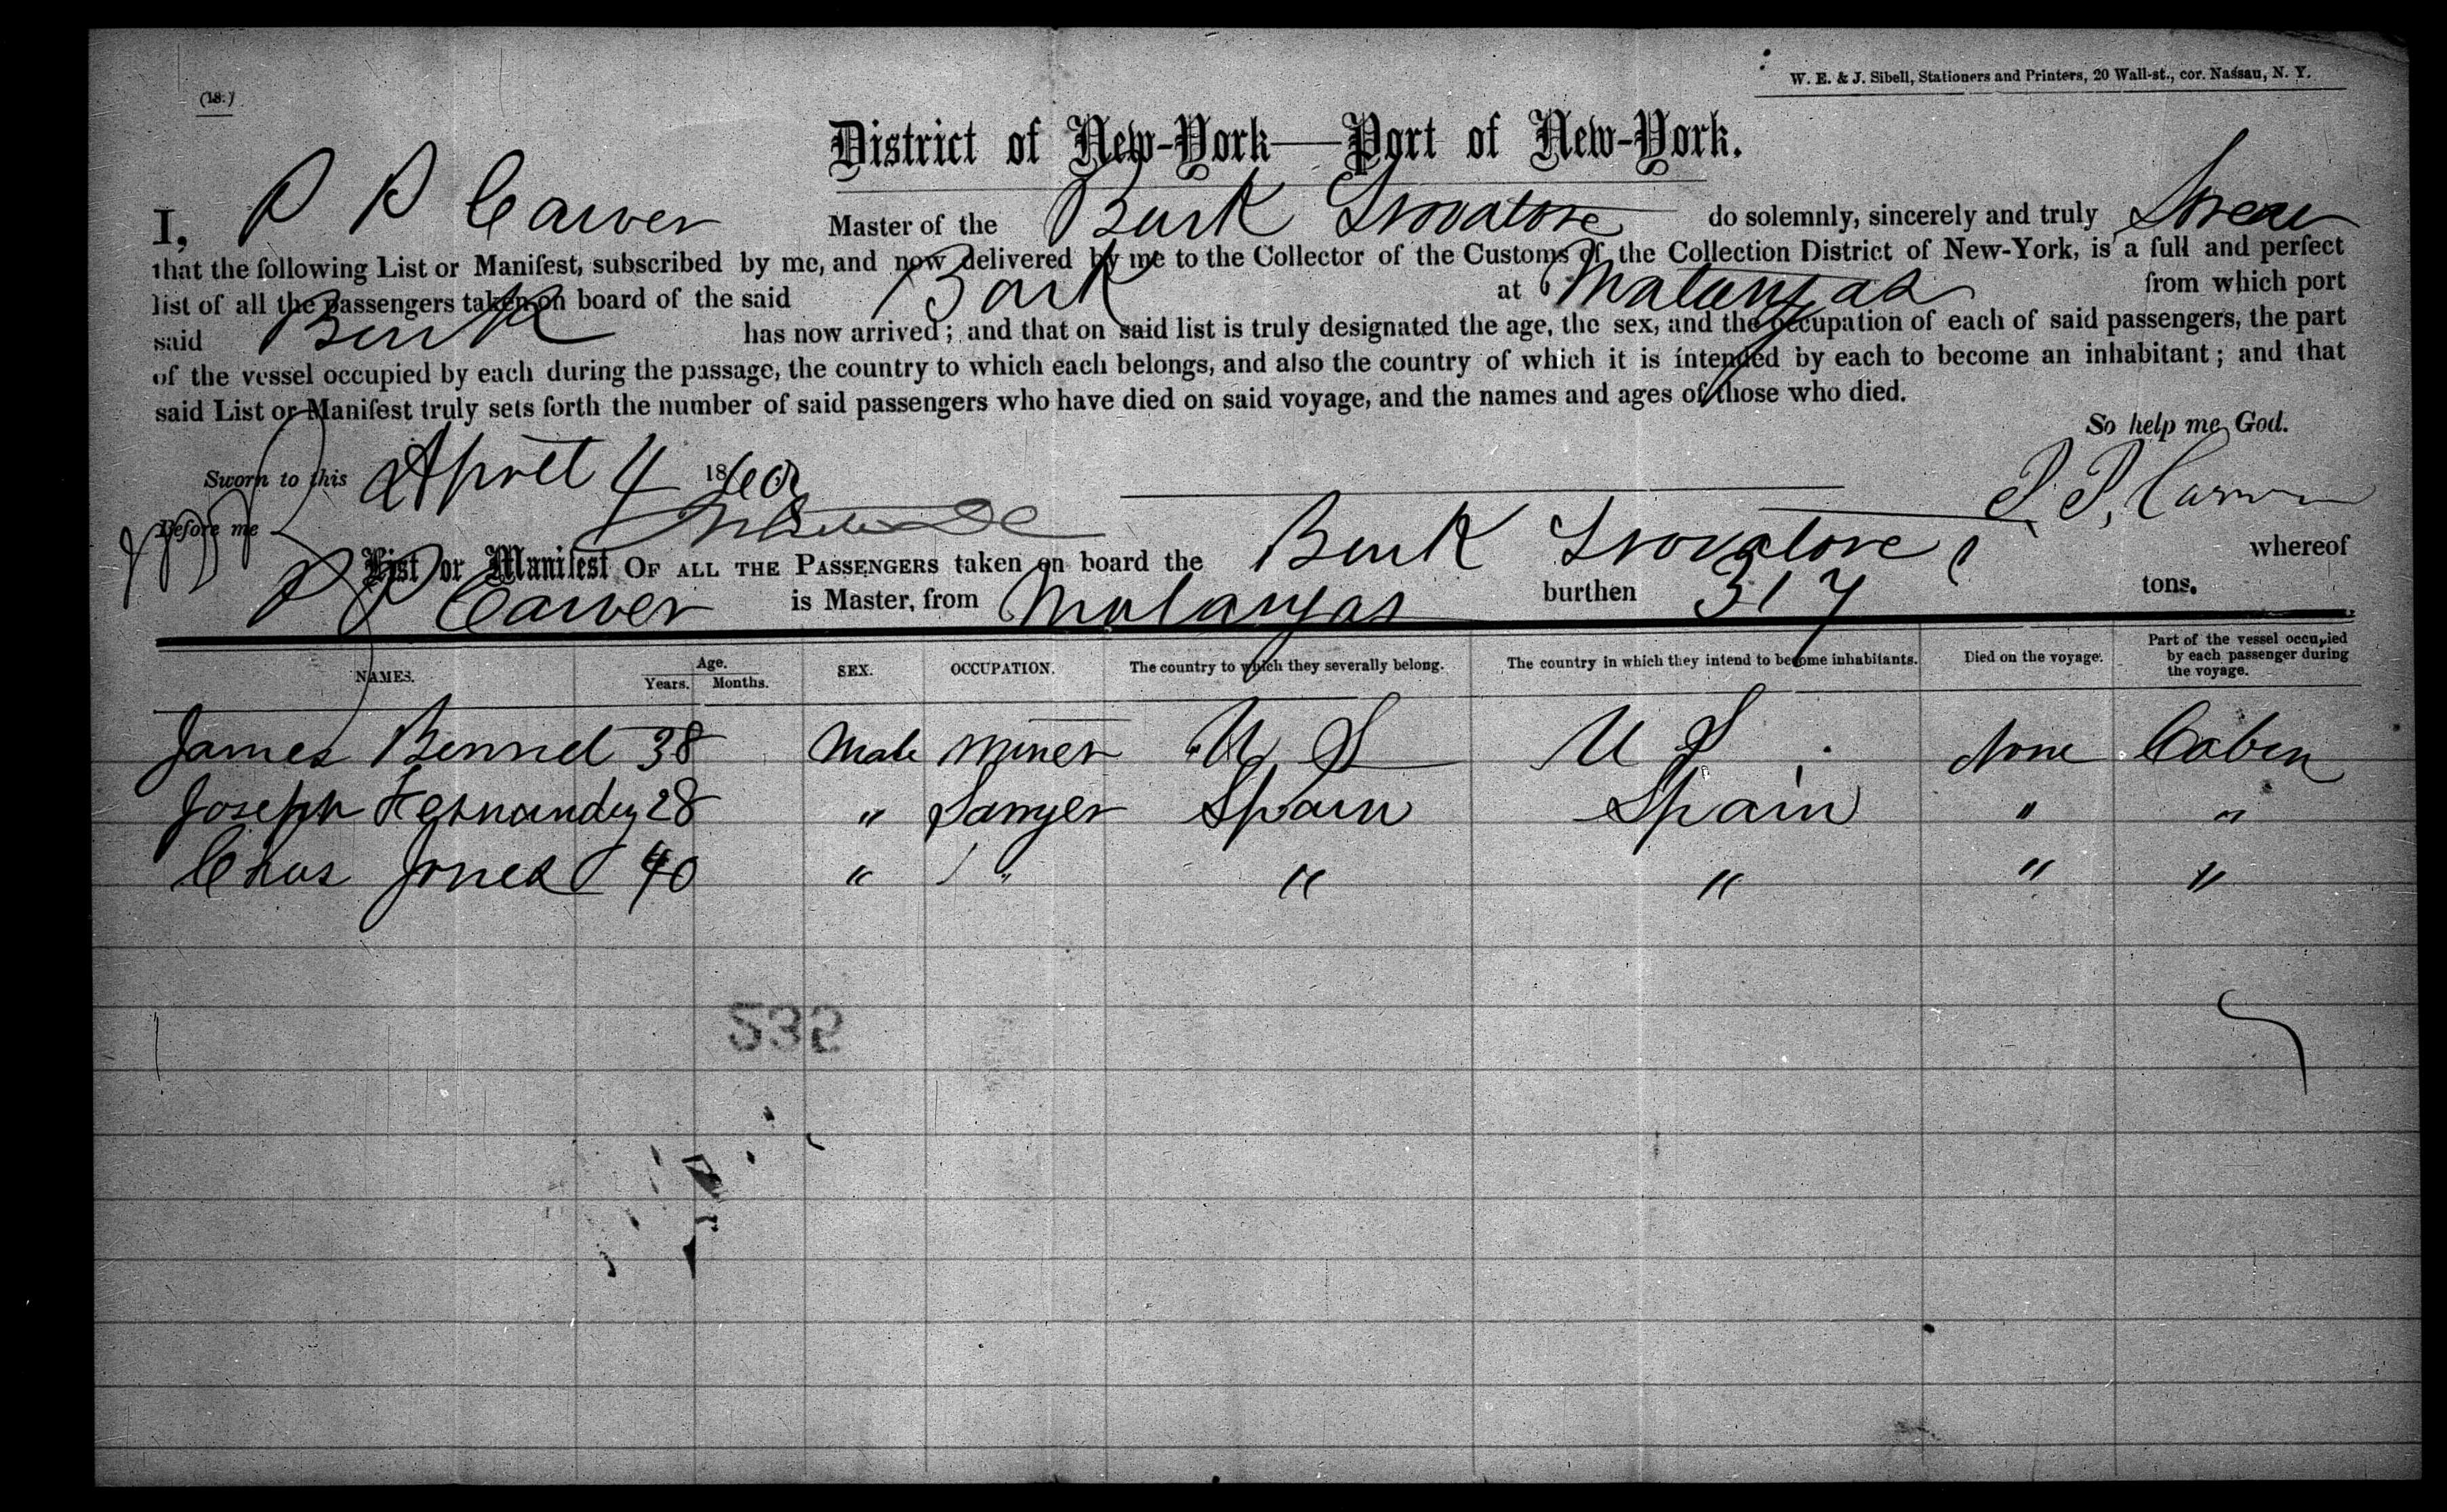 (18.)
W. E. & J. Sibell, Stationers and Printers, 20 Wall-st., cor. Nassau, N. Y.
District of New-York—Port of New-York.
I, P P Carver Master of the Bark Trovatore do solemnly, sincerely and truly Swear
that the following List or Manifest, subscribed by me, and now delivered by me to the Collector of the Customs of the Collection District of New-York, is a full and perfect
list of all the passengers taken on board of the said Bark at Matanzas from which port
said Bark has now arrived; and that on said list is truly designated the age, the sex, and the occupation of each of said passengers, the part
of the vessel occupied by each during the passage, the country to which each belongs, and also the country of which it is intended by each to become an inhabitant; and that
said List or Manifest truly sets forth the number of said passengers who have died on said voyage, and the names and ages of those who died.
So help me God.
Sworn to this April 4 1860 P. P. Carver
Before me
List or Manifest OF ALL THE PASSENGERS taken on board the Bark Trovatore whereof
P P Carver is Master, from Matanzas burthen 317 tons.
NAMES. Age. Years. Months. SEX. OCCUPATION. The country to which they severally belong. The country in which they intend to become inhabitants. Died on the voyage. Part of the vessel occupied by each passenger during the voyage.
James Bennet 38 Male Miner U S U S None Caben
Joseph Fernandez 28 " Sawyer Spain Spain " "
Chas Jones 40 " " " " " "
532